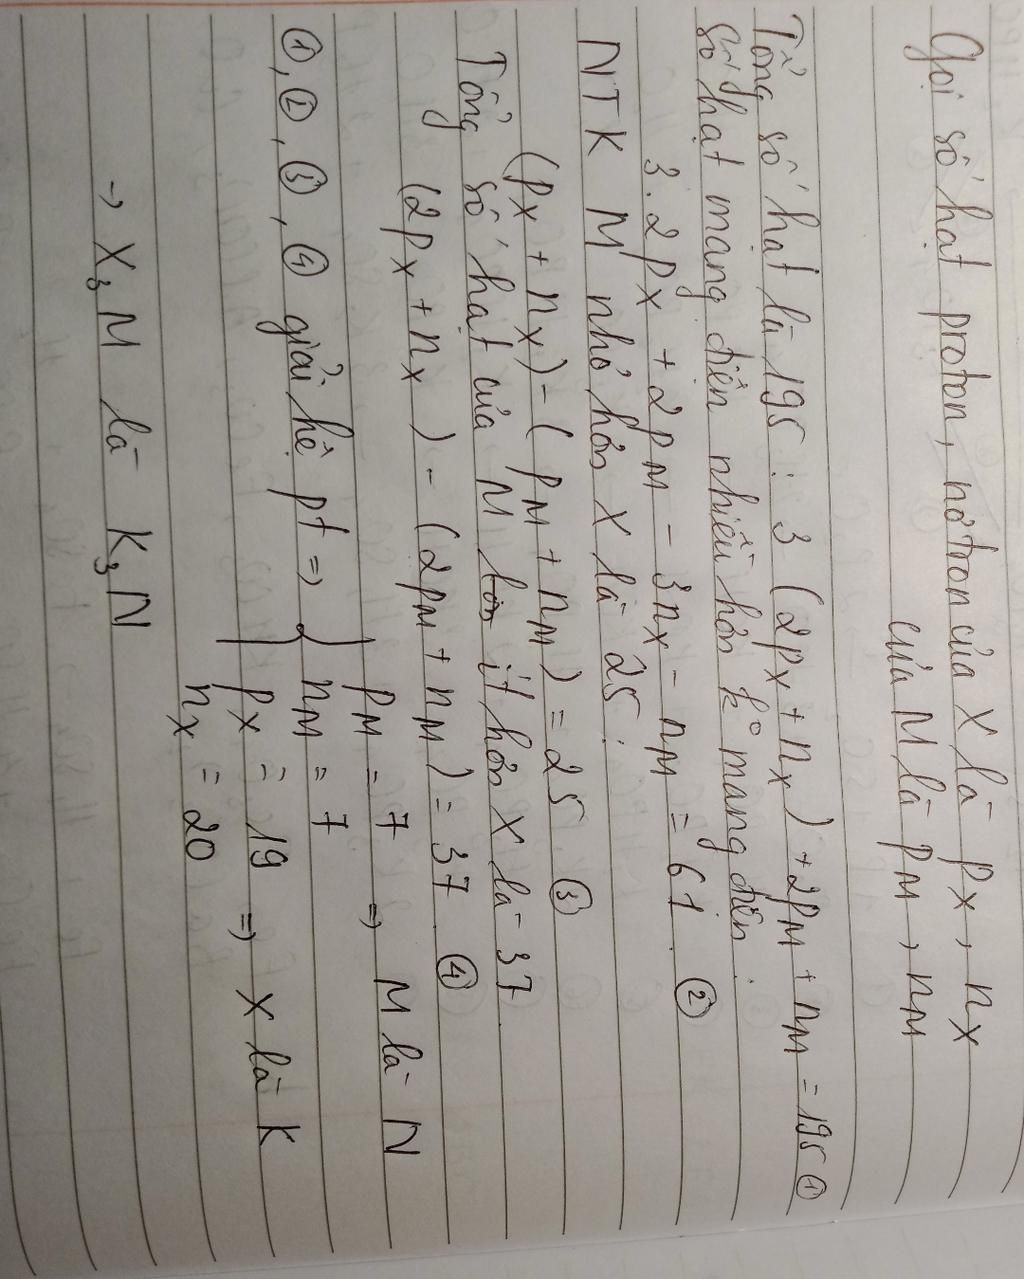 Gọi số hạt proton, nơtron của X là pX, nX
của M là pM, nM
Tổng số hạt là 195 : 3 (2pX + nX) + 2pM + nM = 195 ①
Số hạt mang điện nhiều hơn k° mang điện :
3. 2pX + 2pM - 3nX - nM = 61 ②
NTK M nhỏ hơn X là 25 :
(pX + nX) - (pM + nM) = 25 ③
Tổng số hạt của M ít hơn X là 37
(2pX + nX) - (2pM + nM) = 37 ④
①, ②, ③, ④ giải hệ pt => { pM = 7 => M là N
nM = 7
pX = 19 => X là K
nX = 20
→ X₃M là K₃N